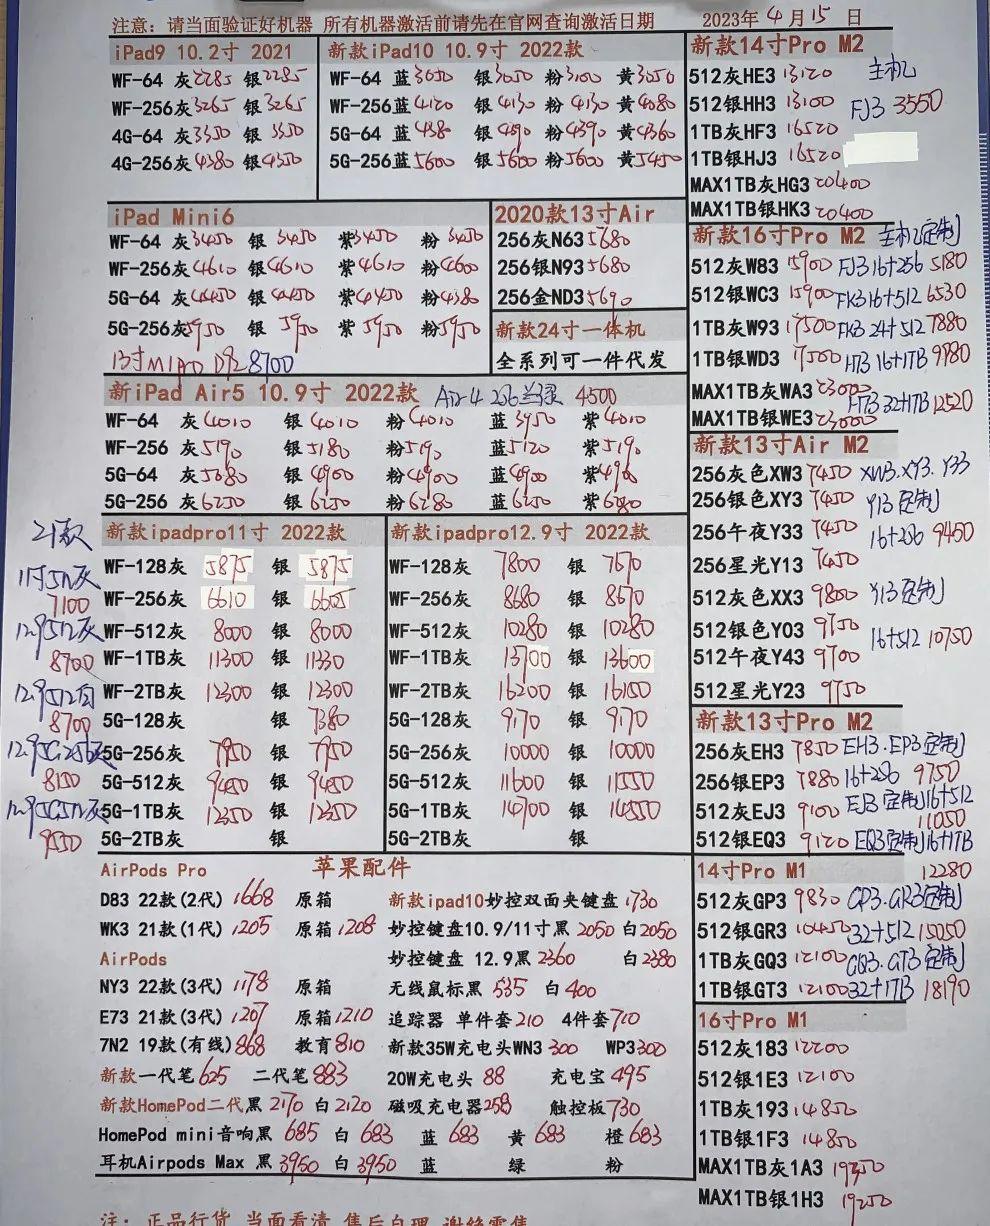 注意：请当面验证好机器 所有机器激活前请先在官网查询激活日期 2023年4月15日
iPad9 10.2寸 2021
WF-64 灰2285 银2285
WF-256灰3265 银3265
4G-64 灰3350 银3350
4G-256灰4380 银4350
新款iPad10 10.9寸 2022款
WF-64 蓝3050 银3050 粉3100 黄3050
WF-256蓝4120 银4130 粉4130 黄4080
5G-64 蓝4380 银4390 粉4390 黄4360
5G-256蓝5600 银5600 粉5600 黄5450
iPad Mini6
WF-64 灰3450 银3450 紫3450 粉3450
WF-256灰4610 银4610 紫4610 粉4600
5G-64 灰4450 银4450 紫4450 粉4380
5G-256灰5950 银5950 紫5950 粉5950
13寸M1 8700
2020款13寸Air
256灰N63 5680
256银N93 5680
256金ND3 5690
新款24寸一体机
全系列可一件代发
新iPad Air5 10.9寸 2022款 Air4 256兰绿 4500
WF-64 灰4010 银4010 粉4010 蓝3950 紫4010
WF-256 灰5190 银5180 粉5190 蓝5120 紫5190
5G-64 灰5080 银4900 粉4900 蓝4900 紫4900
5G-256 灰6250 银6250 粉6280 蓝6250 紫6280
21款
11寸512灰
7100
12.9 512灰
8700
12.9 512白
8700
12.9 5G256灰
8150
12.9 5G512灰
9550
新款ipadpro11寸 2022款
WF-128灰 5875 银 5875
WF-256灰 6610 银 6605
WF-512灰 8000 银 8000
WF-1TB灰 11300 银 11330
WF-2TB灰 12300 银 12300
5G-128灰 银 7380
5G-256灰 7950 银 7950
5G-512灰 9450 银 9450
5G-1TB灰 12350 银 12350
5G-2TB灰 银
新款ipadpro12.9寸 2022款
WF-128灰 7800 银 7670
WF-256灰 8680 银 8670
WF-512灰 10280 银 10280
WF-1TB灰 13700 银 13600
WF-2TB灰 16200 银 16150
5G-128灰 9170 银 9170
5G-256灰 10000 银 10000
5G-512灰 11600 银 11550
5G-1TB灰 14700 银 14550
5G-2TB灰 银
AirPods Pro 苹果配件
D83 22款(2代) 1668 原箱
WK3 21款(1代) 1205 原箱1208
AirPods
NY3 22款(3代) 1178 原箱
E73 21款(3代) 1207 原箱1210
7N2 19款(有线)868 教育810
新款一代笔625 二代笔883
新款HomePod二代黑2170 白2120
HomePod mini音响黑 685 白 683 蓝 683 黄 683 橙683
耳机Airpods Max 黑3950 白3950 蓝 绿 粉
新款ipad10妙控双面夹键盘1730
妙控键盘10.9/11寸黑 2050 白2050
妙控键盘 12.9黑2360 白2380
无线鼠标黑 535 白400
追踪器 单件套210 4件套710
新款35W充电头WN3 300 WP3 300
20W充电头 88 充电宝 495
磁吸充电器258 触控板730
新款14寸Pro M2
512灰HE3 13120 主机
512银HH3 13100 FJ3 3550
1TB灰HF3 16520
1TB银HJ3 16520
MAX1TB灰HG3 20400
MAX1TB银HK3 20400
新款16寸Pro M2 主机定制
512灰W83 15900 FJ3 16+256 5180
512银WC3 15900 FK3 16+512 6530
1TB灰W93 17500 FK3 24+512 7880
1TB银WD3 17500 H73 16+1TB 9980
MAX1TB灰WA3 23000 H73 32+1TB 12520
MAX1TB银WE3 23000
新款13寸Air M2
256灰色XW3 7450 XW3.XY3.Y33
256银色XY3 7450 Y13定制
256午夜Y33 7450 16+256 9450
256星光Y13 7450
512灰色XX3 9800 Y13定制
512银色Y03 9750 16+512 10750
512午夜Y43 9700
512星光Y23 9750
新款13寸Pro M2
256灰EH3 7850 EH3.EP3定制
256银EP3 7880 16+256 9750
512灰EJ3 9100 EJ3定制16+512 11050
512银EQ3 9120 EQ3定制16+1TB
12280
14寸Pro M1
512灰GP3 9830 GP3.GR3定制
512银GR3 10450 32+512 15050
1TB灰GQ3 12100 GQ3.GT3定制
1TB银GT3 12100 32+1TB 18190
16寸Pro M1
512灰183 12200
512银1E3 12100
1TB灰193 14850
1TB银1F3 14850
MAX1TB灰1A3 19350
MAX1TB银1H3 19250
注：正品行货 当面看清 售后自理 谢绝零售